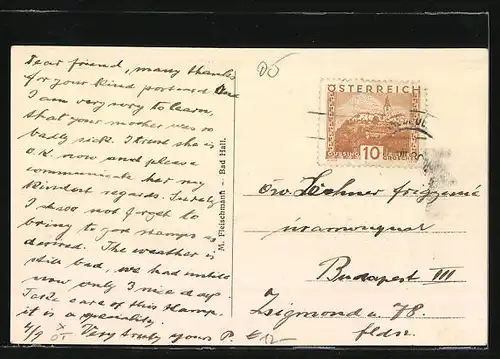 Dear friend, many thanks
for your kind postcard and
I am very sorry to learn,
that your mother was so
badly sick. I trust she is
O.K. now and please
communicate her my
kindest regards. Surely
I shoo not forget to
bring to you stamps as
desired. The weather is
still bad, we had until
now only 1 nice day.
Take care of this stamp,
it is a speciality.
4/9 Very truly yours P.
M. Fleischmann - Bad Hall.
ÖSTERREICH
10
GÜSSING
öv. Lechner frigyesné
úrasszonynak
Budapest III
Zsigmond u. 78.
fldsz.
12-